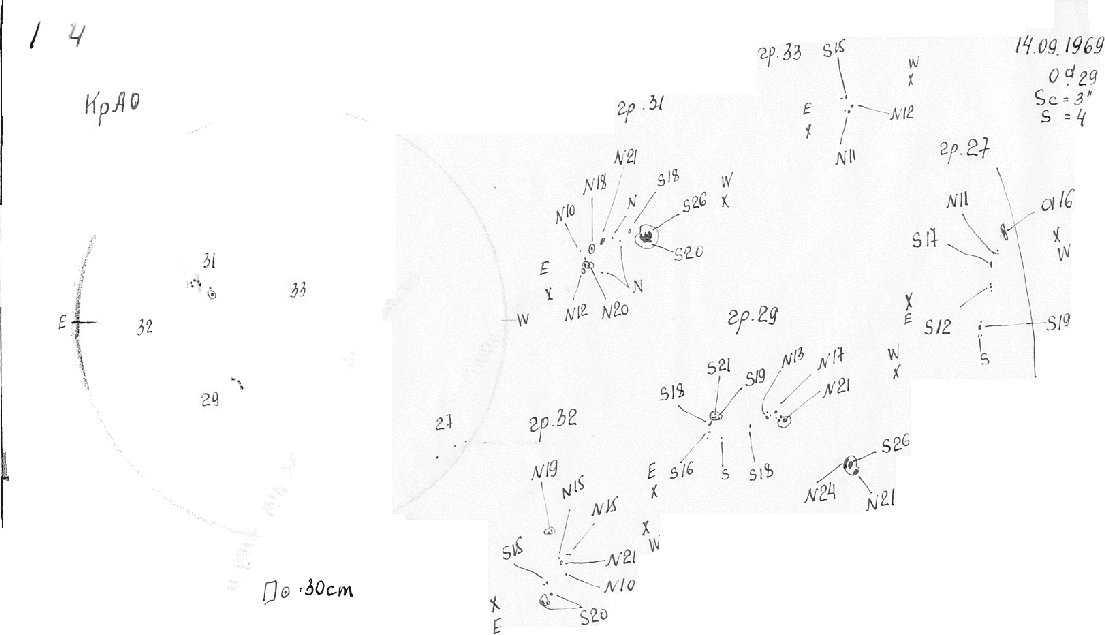 1 4
КрАО
14.09.1969
0ᵈ.29
Sc = 3"
S = 4
E
W
31
33
32
29
27
□⊙ · 30cm
гр.33
S15
N12
N11
E
X
W
X
гр.31
N21
N18
N
S18
N10
S26
S20
N
N12
N20
E
X
W
X
гр.27
N11
d16
S17
S12
S19
S
X
W
X
E
гр.29
S21
S18
S19
N13
N17
N21
S16
S
S18
S26
N24
N21
E
X
W
X
гр.32
N19
N15
N15
S15
N21
N10
S20
X
W
X
E